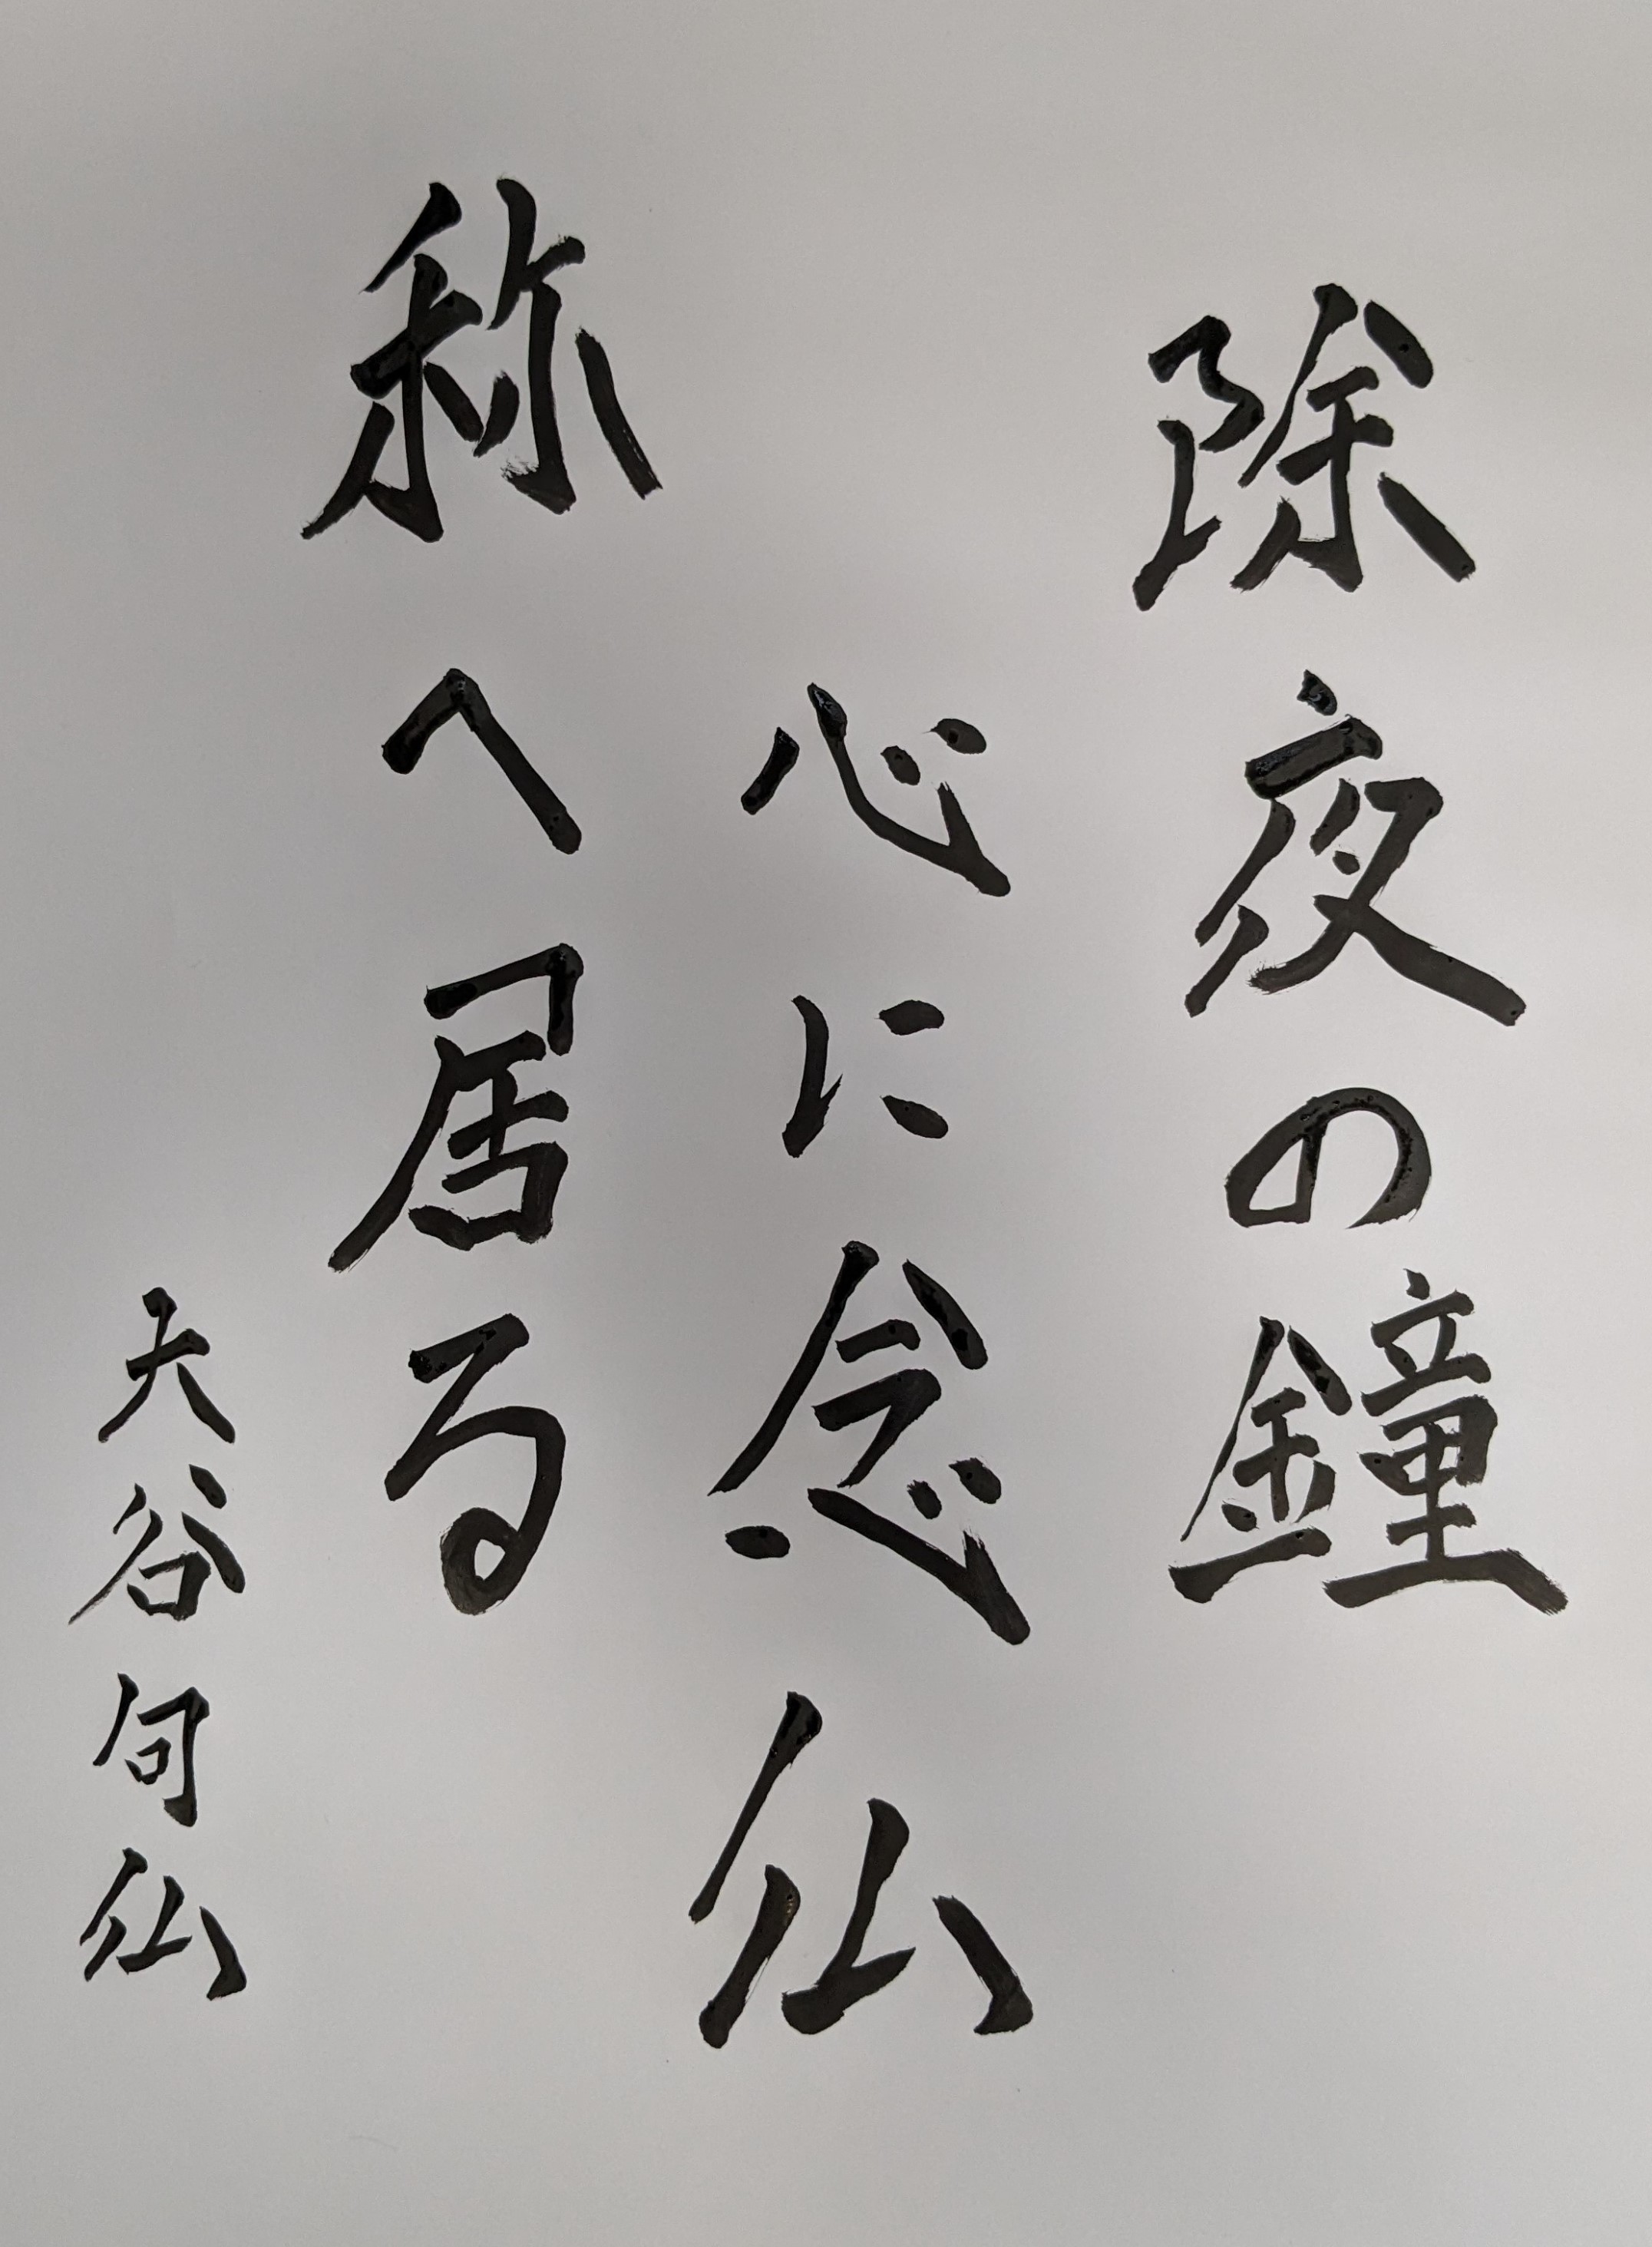 除夜の鐘
心に念仏
称へ居る
大谷句仏